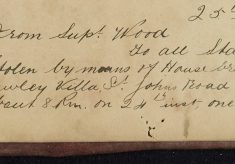 25th
From Supt. Wood
To all Sta
Stolen by means of House br
wley Villa, St. Johns Road
bout 8 P.m. on 24th inst, one